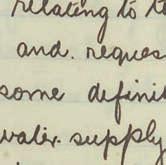 relating to t
and. reques
some definit
water. supply